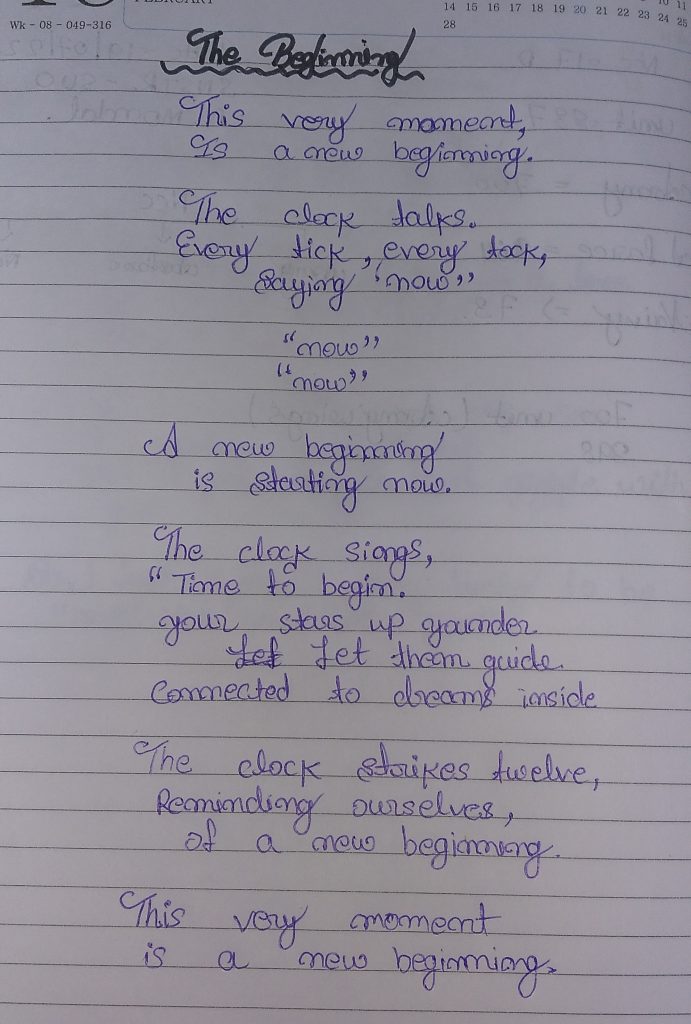 FEBRUARY
Wk - 08 - 049-316
10 11
14 15 16 17 18 19 20 21 22 23 24 25
28
The Beginning
This very moment,
Is a new beginning.
The clock talks.
Every tick, every tock,
Saying "now"
"now"
"now"
A new beginning
is starting now.
The clock sings,
"Time to begin.
your stars up younder
Let Let them guide
Connected to dreams inside
The clock strikes twelve,
Reminding ourselves,
of a new beginning.
This very moment
is a new beginning.